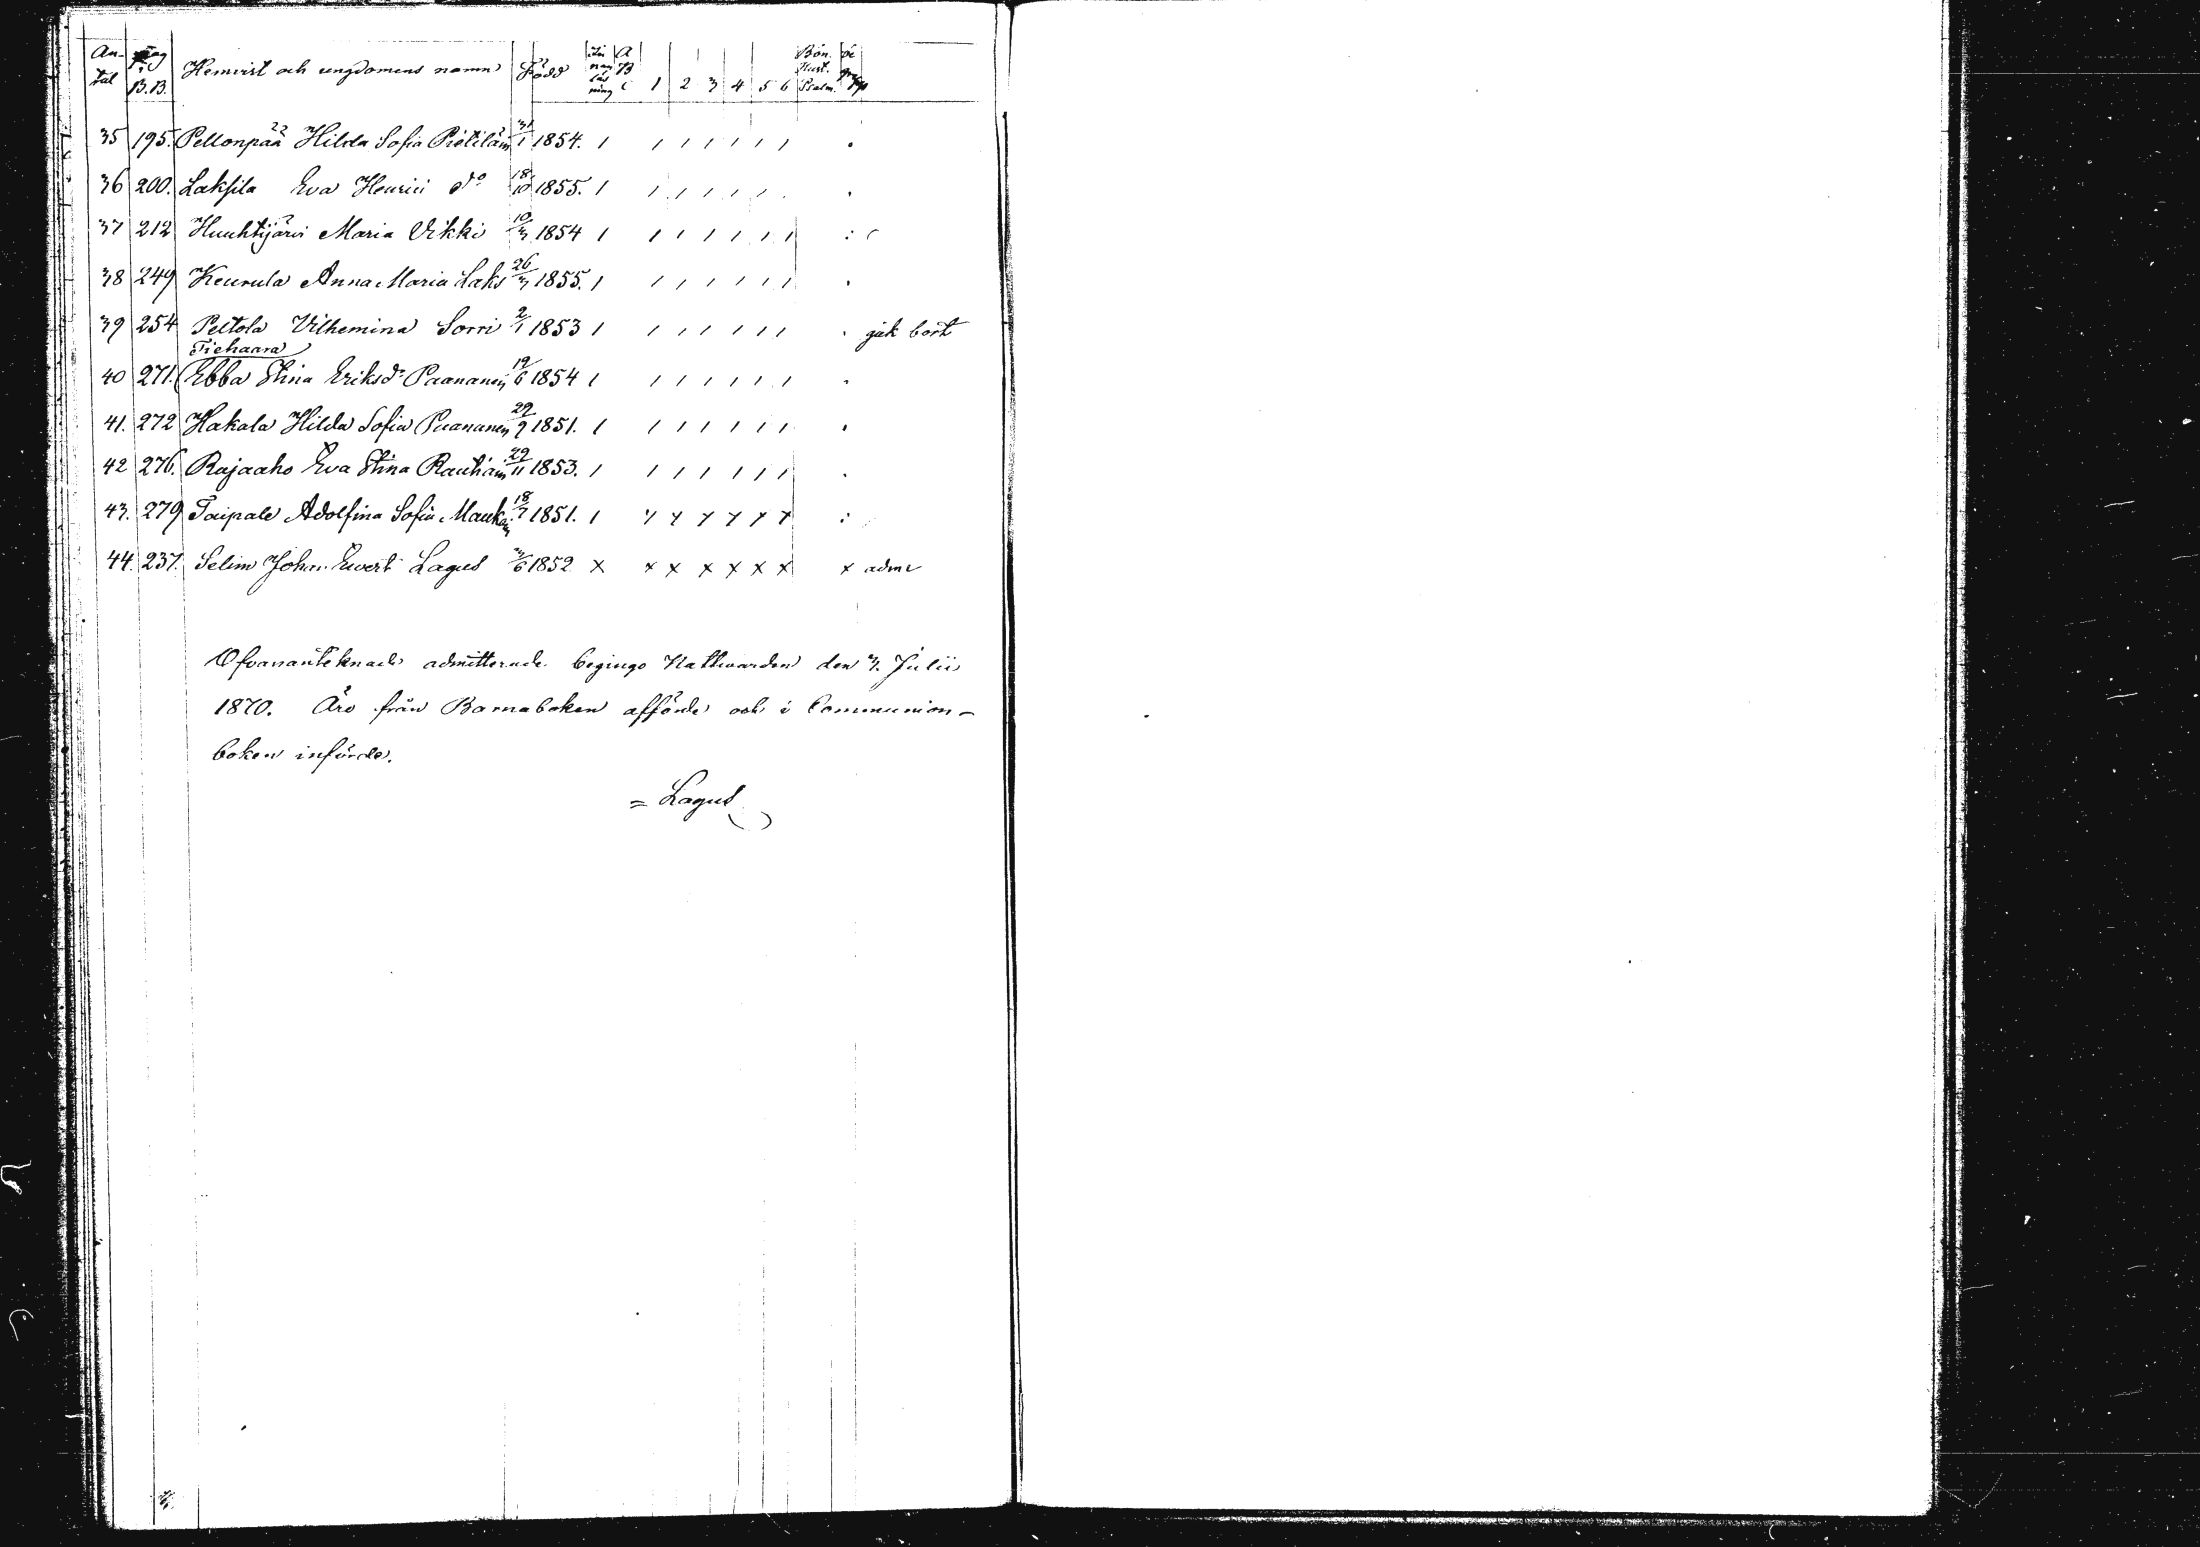 An-
tal
pag
i
B.B.
Hemvist och ungdomens namn
Född
In
nan
läs
ning
A
B
C
1 2 3 4 5 6
Bön.
Hust.
Psalm.
be
grepp
35 195. Pellonpää Hilda Sofia Piötiläin 31/1 1854. 1 1 1 1 1 1 1 .
36 200. Laksila Eva Henrici do 18/10 1855. 1 1 1 1 1 1 1 .
37 212 Huuhtijärvi Maria Vikki 10/3 1854 1 1 1 1 1 1 1 :
38 249 Keurula Anna Maria Laks 26/3 1855. 1 1 1 1 1 1 1 .
39 254 Peltola Vilhemina Sorri 2/1 1853 1 1 1 1 1 1 1 . gick bort
Tiehaara
40 271. Ebba Stina Eriksdr Paananen 19/6 1854 1 1 1 1 1 1 1 .
41. 272 Hakala Hilda Sofia Paananen 29/9 1851. 1 1 1 1 1 1 1 .
42 276. Rajaaho Eva Stina Rautiain 29/11 1853. 1 1 1 1 1 1 1 .
43. 279 Taipale Adolfina Sofia 18/7 1851. 1 :
44. 237. Selim Johan Ewert Lagus 3/6 1852 x x x x x x x x adm
Ofvanantecknade admitterade begingo Nattwarden den 3. Julii
1870. Äro från Barnaboken afförde och i Communion-
boken införde.
= Lagus